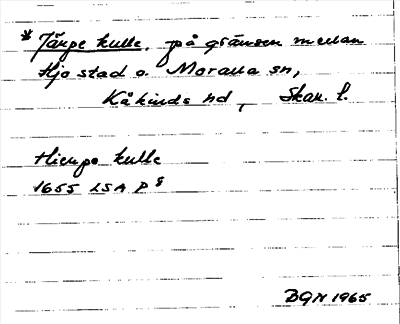 * Järpe kulle, på gränsen mellan
Hjo stad o. Mofalla sn,
Kåkinds hd, Skar. l.
Hierpe kulle
1655 LSA P 8
BGN 1965